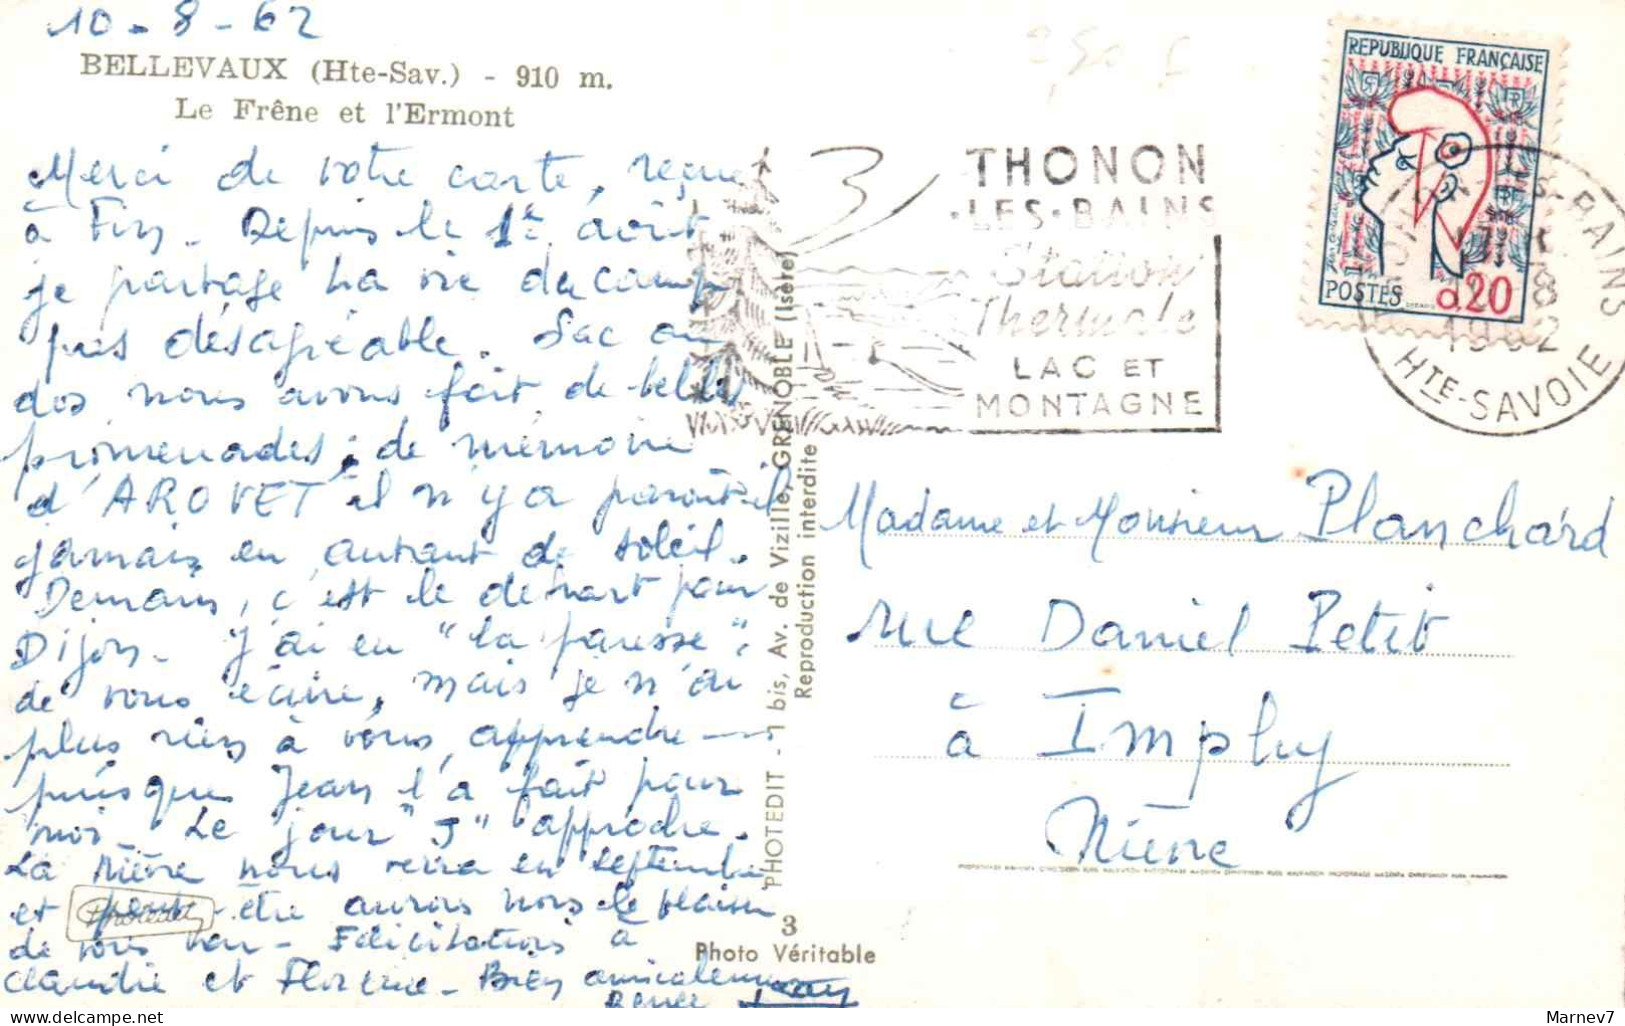 10-8-62
BELLEVAUX (Hte-Sav.) - 910 m.
Le Frêne et l'Ermont
Merci de votre carte, reçue
à Fix. Depuis le 1er août
je partage la vie du camp
pas désagréable. Sac au
dos nous avons fait de belles
promenades; de mémoire
d'AROVET il n'y a paraît-il
jamais eu autant de soleil.
Demain, c'est le départ pour
Dijon. J'ai eu "la paresse"
de vous écrire, mais je n'ai
plus rien à vous apprendre
puisque Jean l'a fait pour
moi. Le jour "J" approche.
La Nièvre nous verra en septembre
et peut-être aurons nous le plaisir
de vous voir - Félicitations à
Claudie et Florence - Bien amicalement
Renée
Photedit
PHOTEDIT - 1 bis, Av. de Vizille, GRENOBLE (Isère)
Reproduction interdite
3
Photo Véritable
THONON
-LES-BAINS
Station
Thermale
LAC ET
MONTAGNE
REPUBLIQUE FRANÇAISE
POSTES 0,20
THONON-LES-BAINS
1962
HTE-SAVOIE
Madame et Monsieur Planchard
rue Daniel Petit
à Imphy
Nièvre
Marnev7